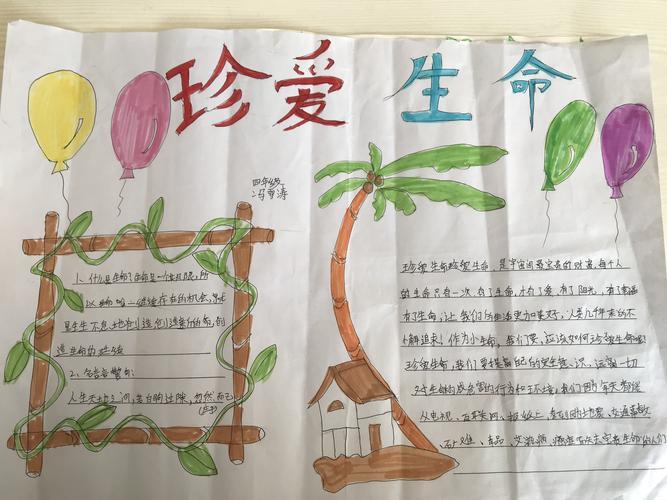 珍爱生命
四年级
冯雪涛
1、什么是生命?生命是一个
以影响 继续存在的机会,
生生不息地创造创造新的命,创
造生命的
2、名言警句:
人生天地之间,若白驹过隙,忽然而已
(庄子)
珍爱生命珍爱生命,是宇宙间最宝贵的财富,每个人
的生命只有一次,有了生命,才有了爱,有了阳光,有了
有了生命,让我们的生活更加美好,人类几千年来的不
懈追求!作为小生命,我们要,应该如何珍爱生命呢!
珍爱生命,我们要提高自己的安全意识,远离一切
对生命构成危害的行为和环境,我们
从电视、互联网、报纸上,看到因地震、交通事故
矿难、毒品、艾滋病、癌症 失去宝贵生命的人们